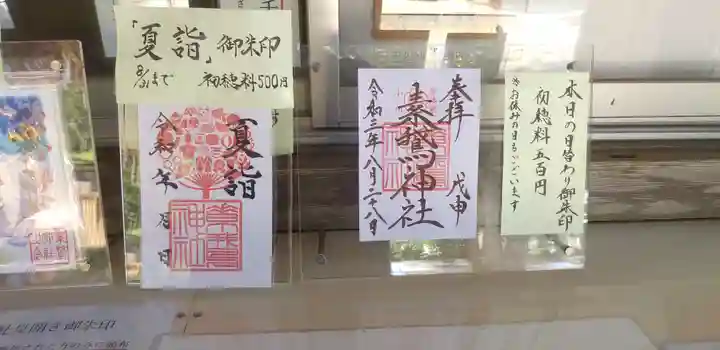 「夏詣」御朱印
8/31まで
初穂料500円
夏詣
令和 年 月 日
奉拝
戊申
素鵞神社
令和三年八月二十八日
本日の日替わり御朱印
初穂料五百円
※お休みの日もございます
社見開き御朱印